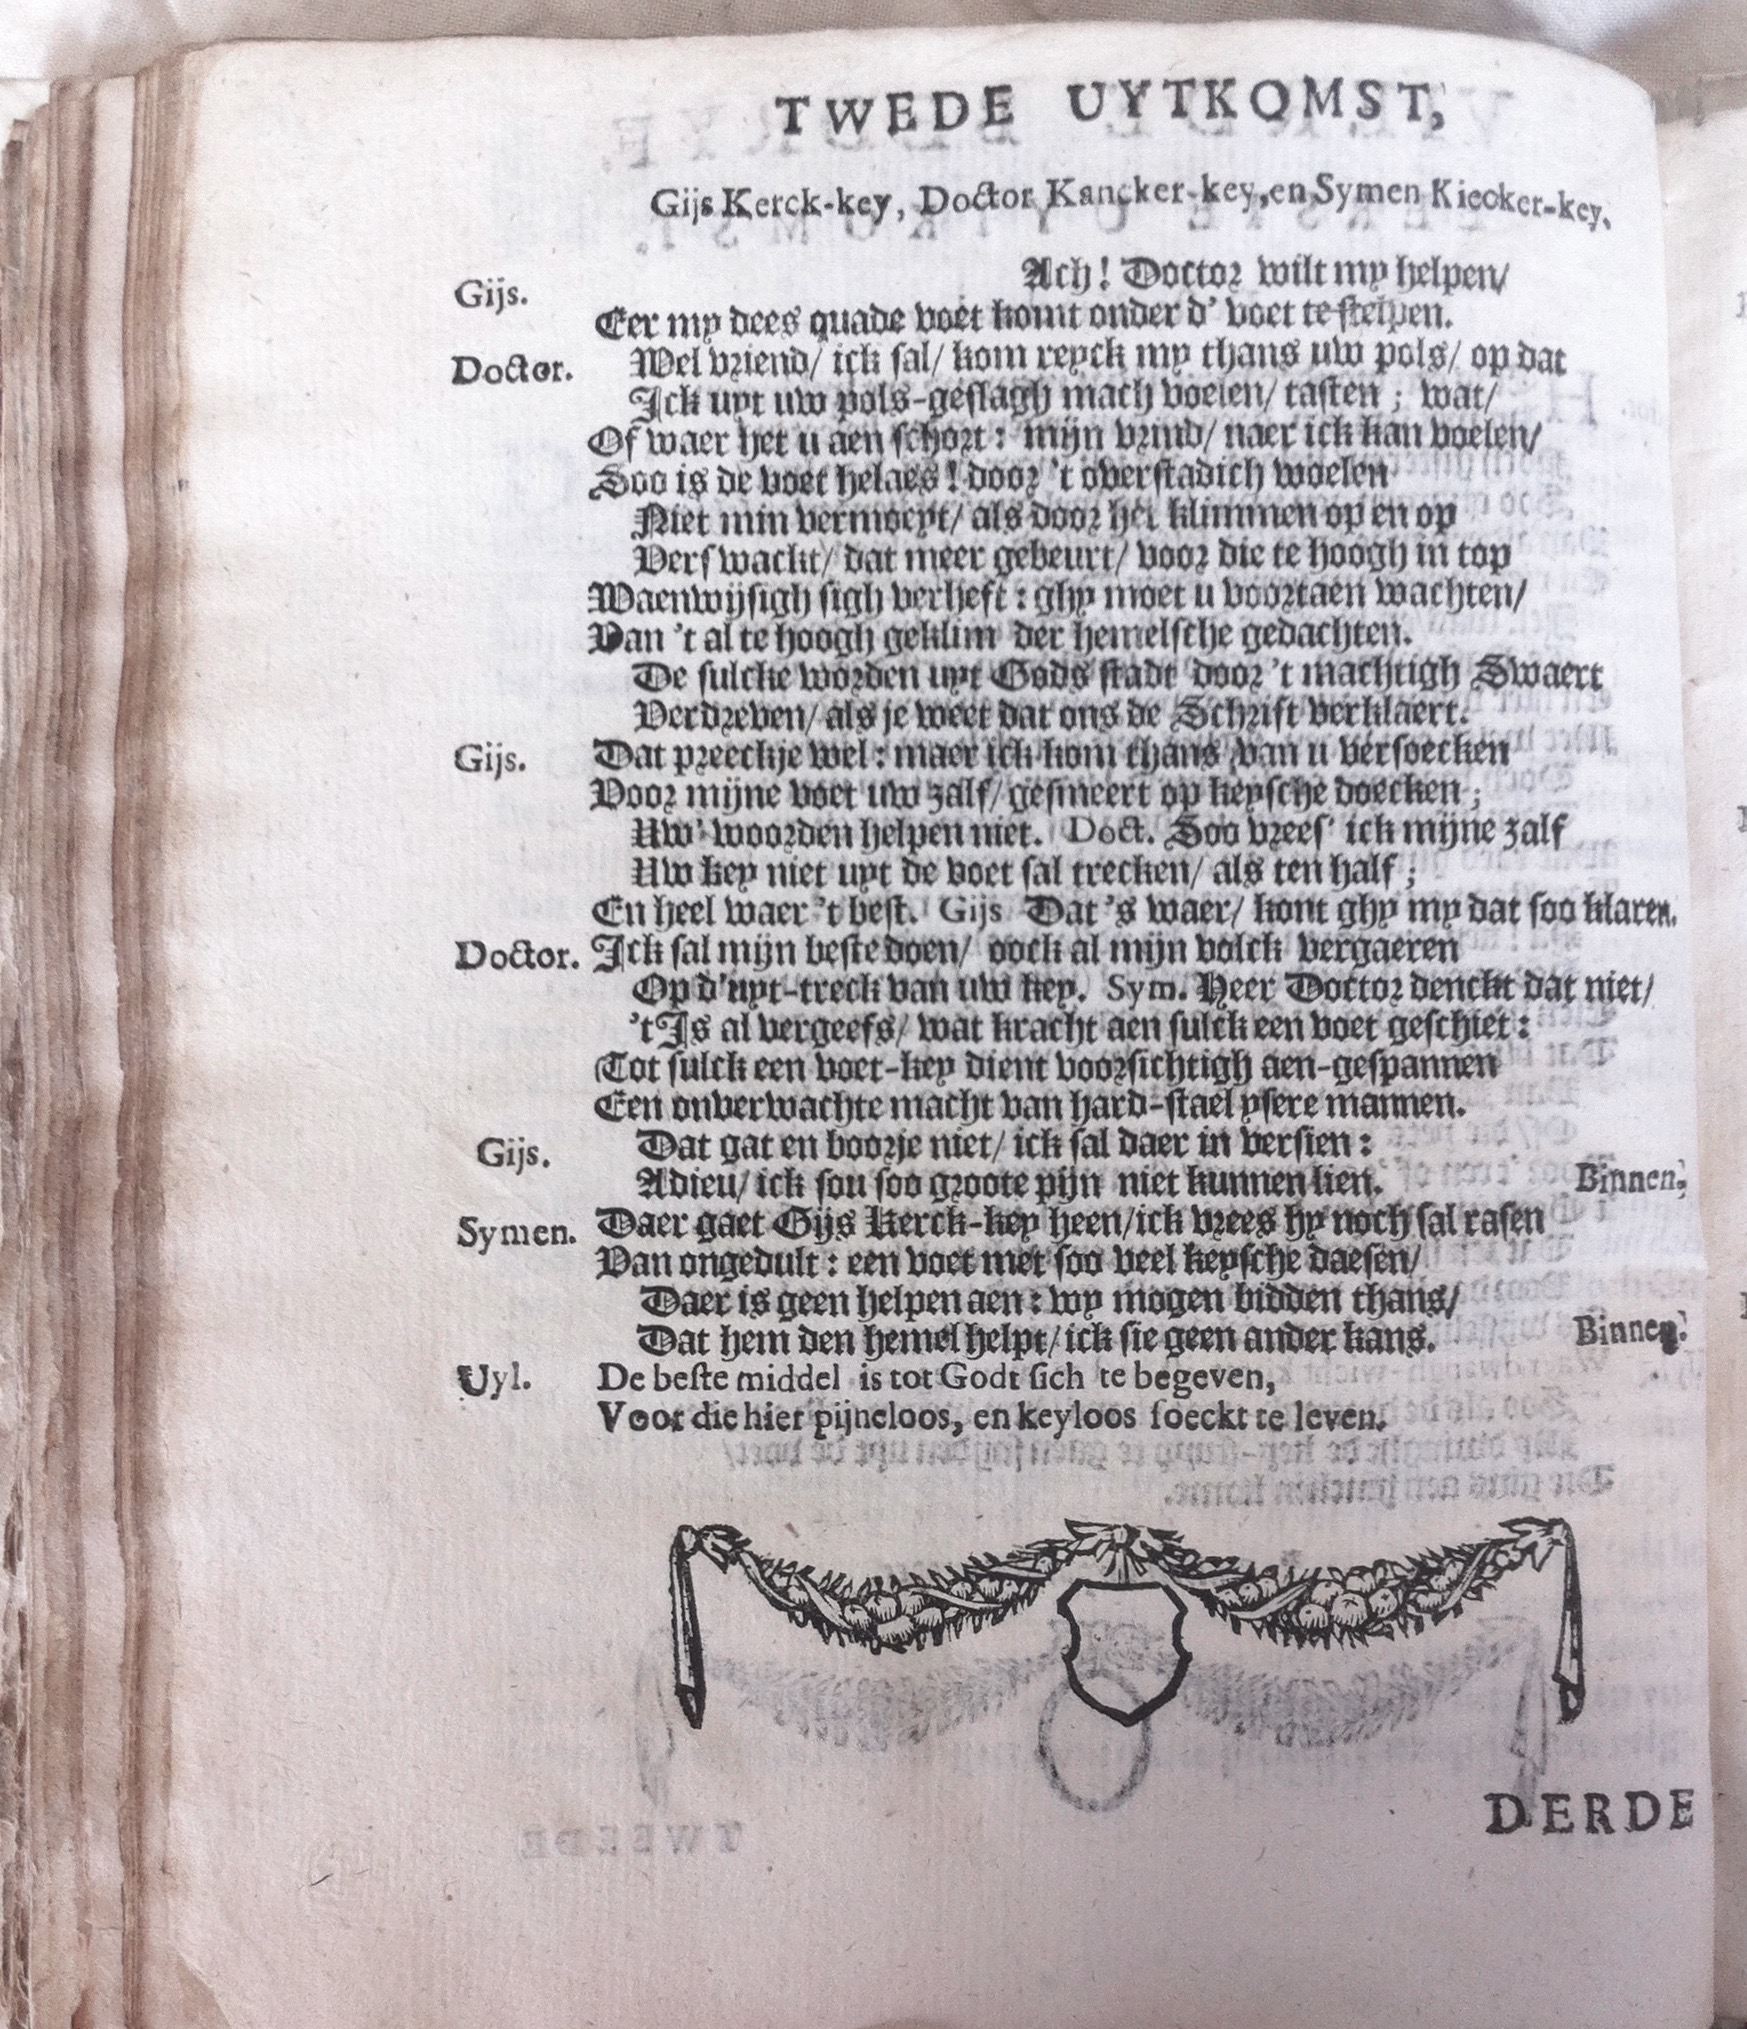 TWEDE UYTKOMST,
Gijs Kerck-key, Doctor Kancker-key, en Symen Kiecker-key.
Gijs. Ach! Doctor wilt my helpen/
Eer my dees quade voet komt onder d' voet te stelpen.
Doctor. Wel vriend/ ick sal/ kom reyck my thans uw pols/ op dat
Ick uyt uw pols-geslagh mach voelen/ tasten; wat/
Of waer het u aen schort: mijn vrind/ naer ick kan voelen/
Soo is de voet helaes! door 't overstadich woelen
Niet min vermoeyt/ als door het klimmen op en op
Verswackt/ dat meer gebeurt/ voor die te hoogh in top
Waenwijsigh sigh verheft: ghy moet u voortaen wachten/
Van 't al te hoogh geklim der hemelsche gedachten.
De sulcke worden uyt Gods stadt door 't machtigh Swaert
Verdreven/ als je weet dat ons de Schrift verklaert.
Gijs. Dat preeckje wel: maer ick kom thans van u versoecken
Voor mijne voet uw zalf/ gesmeert op keysche doecken;
Uw' woorden helpen niet. Doct. Soo vrees' ick mijne zalf
Uw key niet uyt de voet sal trecken/ als ten half;
En heel waer 't best. Gijs Dat 's waer/ kont ghy my dat soo klaren.
Doctor. Ick sal mijn beste doen/ oock al mijn volck vergaeren
Op d'uyt-treck van uw key. Sym. Heer Doctor denckt dat niet/
't Is al vergeefs/ wat kracht aen sulck een voet geschiet:
Tot sulck een voet-key dient voorsichtigh aen-gespannen
Een onverwachte macht van hard-stael ysere mannen.
Gijs. Dat gat en boorje niet/ ick sal daer in versien:
Adieu/ ick sou soo groote pijn niet kunnen lien. Binnen.
Symen. Daer gaet Gijs Kerck-key heen/ ick vrees hy noch sal rasen
Van ongedult: een voet met soo veel keysche daesen/
Daer is geen helpen aen: wy mogen bidden thans/
Dat hem den hemel helpt/ ick sie geen ander kans. Binnen.
Uyl. De beste middel is tot Godt sich te begeven,
Voor die hier pijneloos, en keyloos soeckt te leven.
DERDE